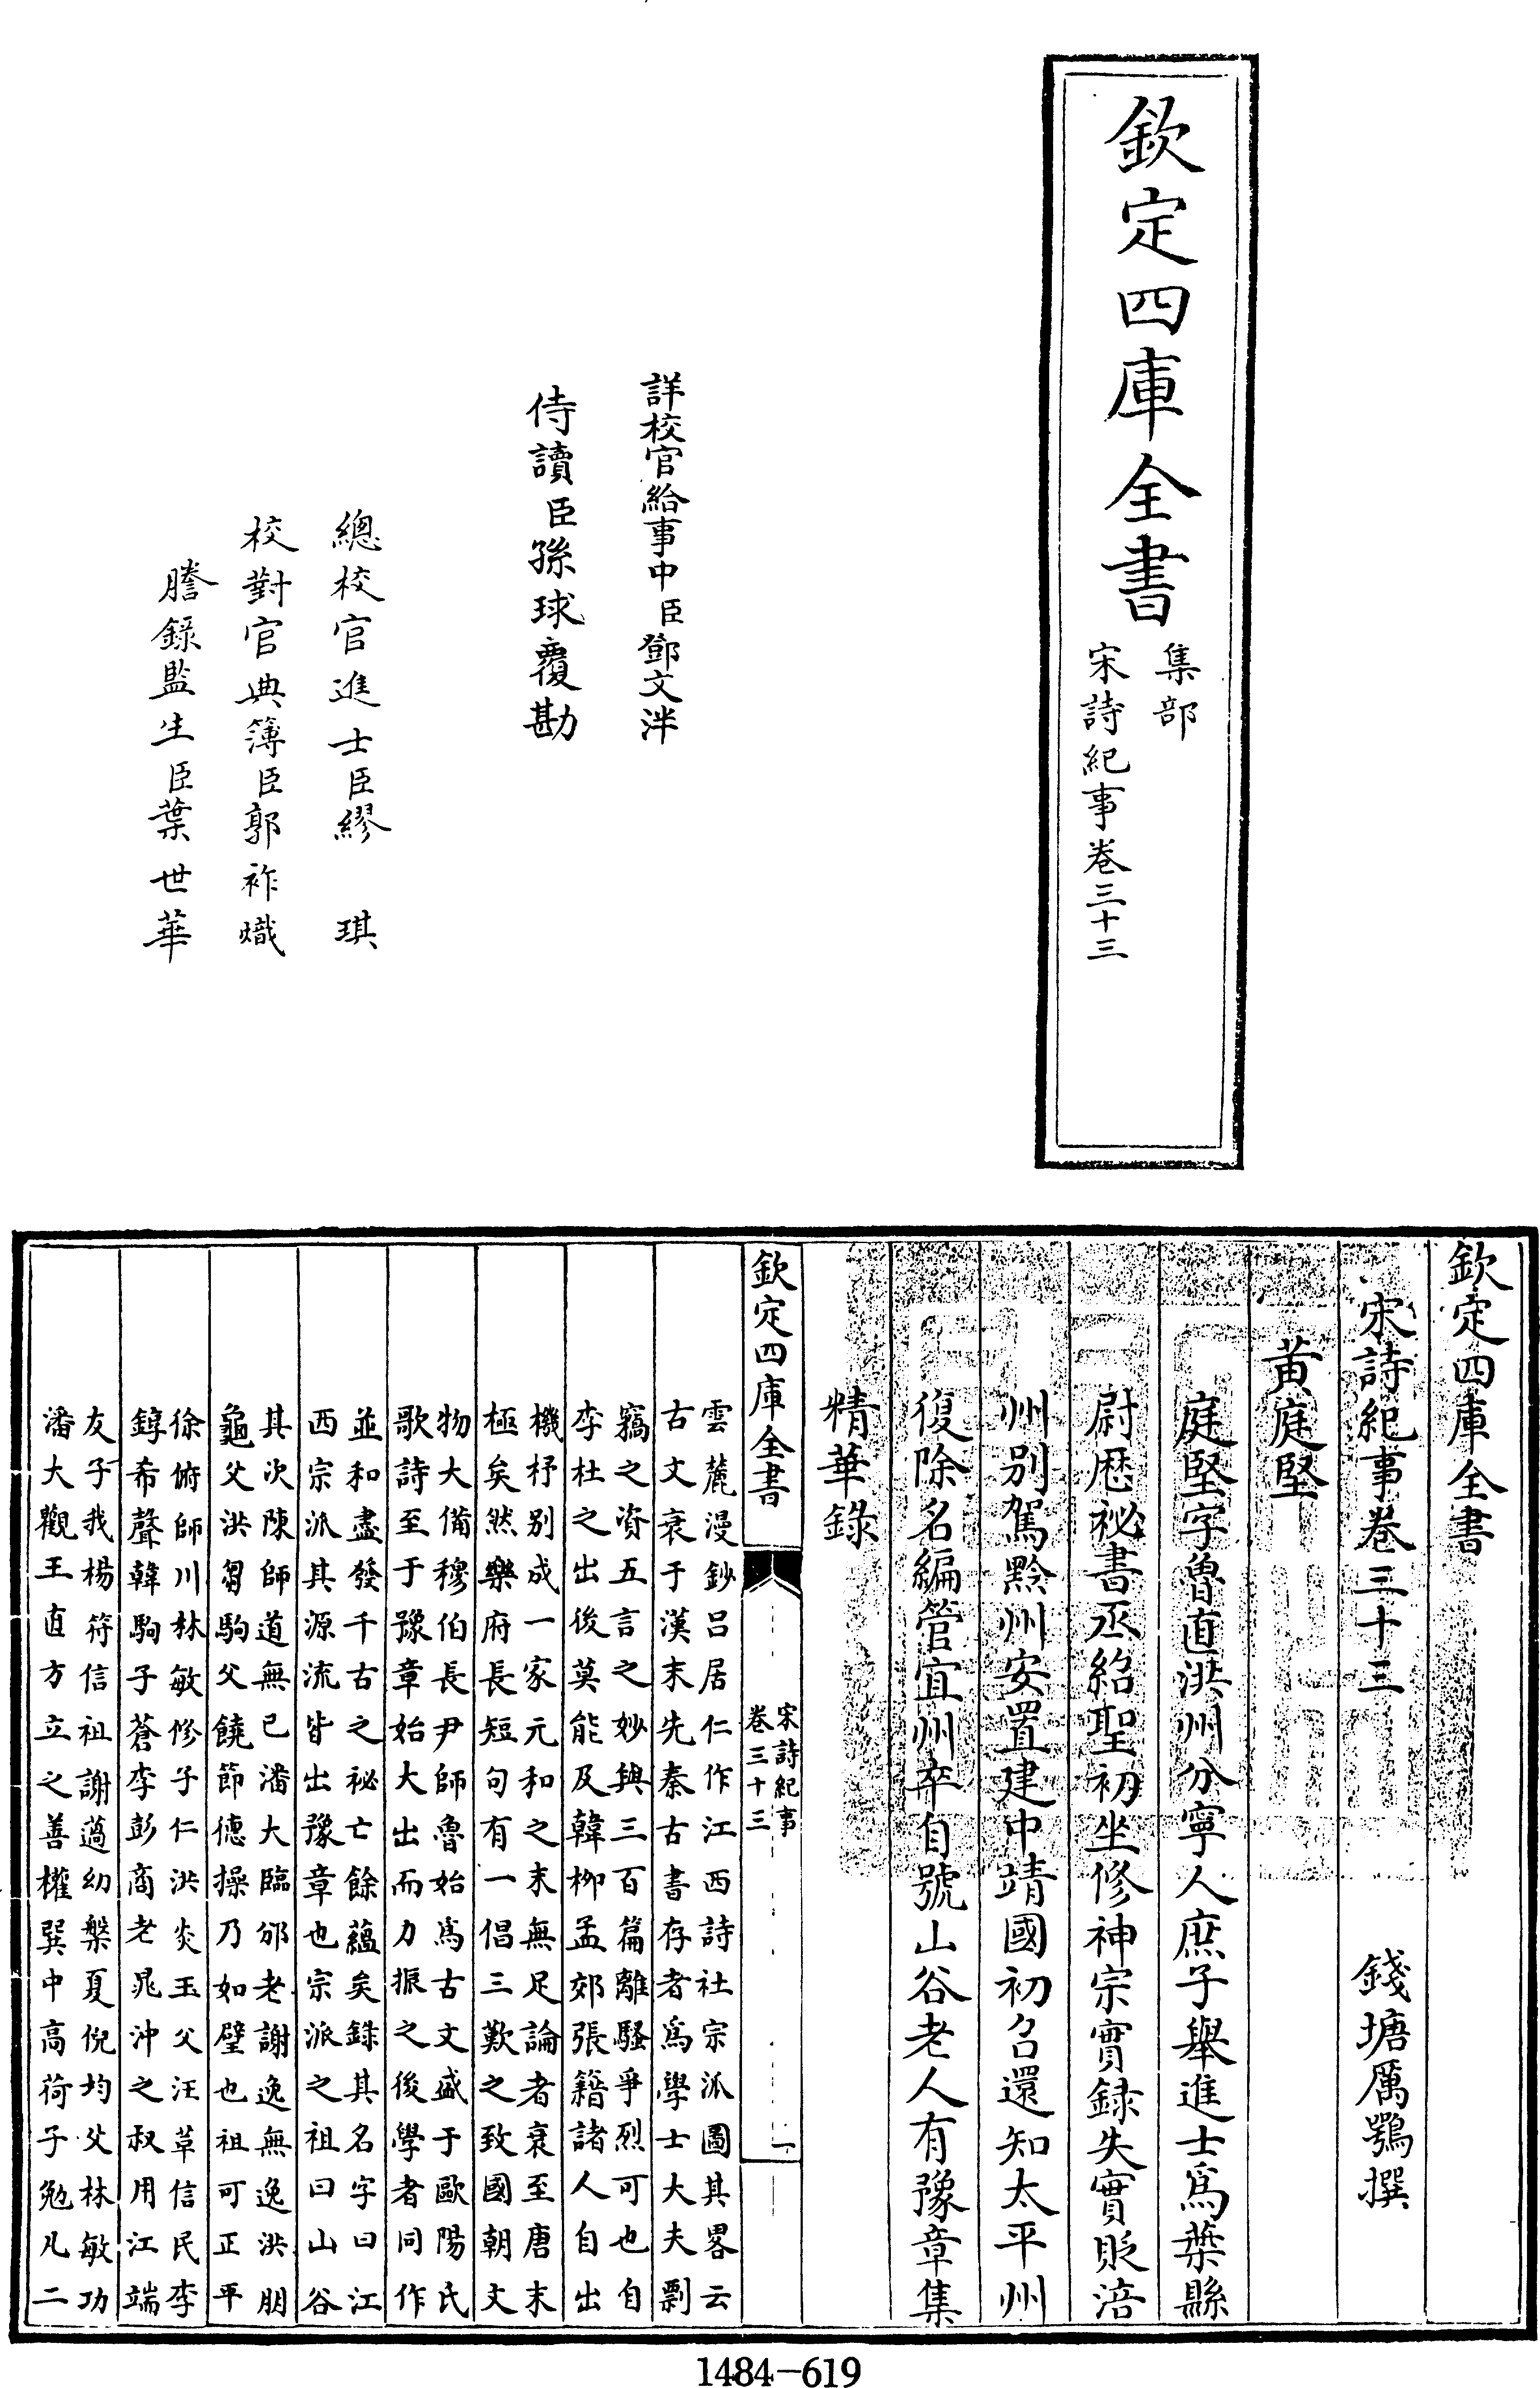 欽定四庫全書
集部
宋詩紀事卷三十三
詳校官給事中臣鄧文泮
侍讀臣孫球覆勘
總校官進士臣繆琪
校對官典簿臣郭祚熾
謄錄監生臣葉世華
欽定四庫全書
宋詩紀事卷三十三
錢塘厲鶚撰
黄庭堅
庭堅字魯直洪州分寧人庶子舉進士爲葉縣
尉歴祕書丞紹聖初坐修神宗實録失實貶涪
州别駕黔州安置建中靖國初召還知太平州
復除名編管宜州卒自號山谷老人有豫章集
精華錄
欽定四庫全書
宋詩紀事
卷三十三
一
雲麓漫鈔吕居仁作江西詩社宗派圖其畧云
古文衰于漢末先秦古書存者爲學士大夫剽
竊之資五言之妙與三百篇離騷爭烈可也自
李杜之出後莫能及韓柳孟郊張籍諸人自出
機杼别成一家元和之末無足論者衰至唐末
極矣然樂府長短句有一倡三歎之致國朝文
物大備穆伯長尹師魯始爲古文盛于歐陽氏
歌詩至于豫章始大出而力振之後學者同作
並和盡發千古之祕亡餘藴矣錄其名字曰江
西宗派其源流皆出豫章也宗派之祖曰山谷
其次陳師道無已潘大臨邠老謝逸無逸洪朋
龜父洪芻駒父饒節德操乃如璧也祖可正平
徐俯師川林敏修子仁洪炎玉父汪革信民李
錞希聲韓駒子蒼李彭商老晁沖之叔用江端
友子我楊符信祖謝薖幼槃夏倪均父林敏功
潘大觀王直方立之善權巽中高荷子勉凡二
1484-619